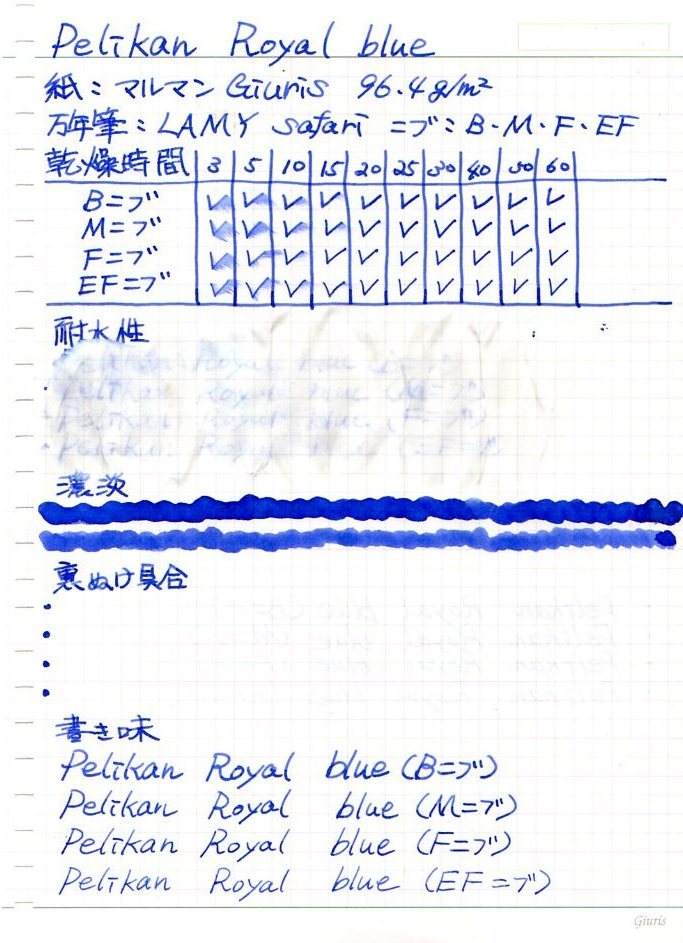 Pelikan Royal blue
紙：マルマン Giuris 96.4g/m²
万年筆：LAMY safari ニブ：B・M・F・EF
乾燥時間 3 5 10 15 20 25 30 40 50 60
B=ニブ ✓ ✓ ✓ ✓ ✓ ✓ ✓ ✓ ✓ ✓
M=ニブ ✓ ✓ ✓ ✓ ✓ ✓ ✓ ✓ ✓ ✓
F=ニブ ✓ ✓ ✓ ✓ ✓ ✓ ✓ ✓ ✓ ✓
EF=ニブ ✓ ✓ ✓ ✓ ✓ ✓ ✓ ✓ ✓ ✓
耐水性
Pelikan Royal blue
・Pelikan Royal blue (M=ニブ)
・Pelikan Royal blue (F=ニブ)
・Pelikan Royal blue
濃淡
裏ぬけ具合
書き味
Pelikan Royal blue (Bニブ)
Pelikan Royal blue (Mニブ)
Pelikan Royal blue (Fニブ)
Pelikan Royal blue (EFニブ)
Giuris